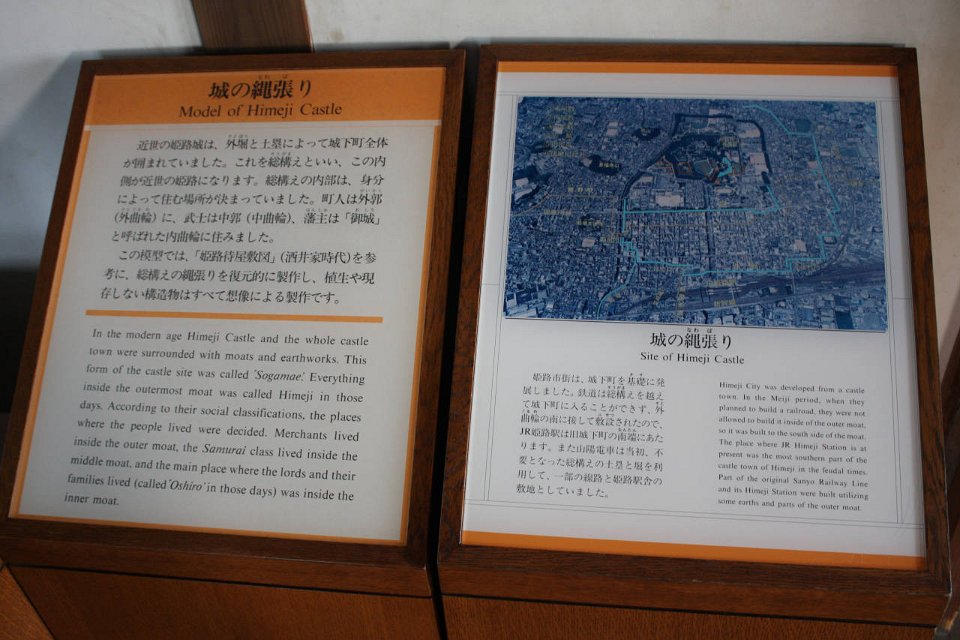 城の縄張り
Model of Himeji Castle
近世の姫路城は、外堀と土塁によって城下町全体
が囲まれていました。これを総構えといい、この内
側が近世の姫路になります。総構えの内部は、身分
によって住む場所が決まっていました。町人は外郭
(外曲輪)に、武士は中郭(中曲輪)、藩主は「御城」
と呼ばれた内曲輪に住みました。
この模型では、「姫路侍屋敷図」(酒井家時代)を参
考に、総構えの縄張りを復元的に製作し、植生や現
存しない構造物はすべて想像による製作です。
In the modern age Himeji Castle and the whole castle
town were surrounded with moats and earthworks. This
form of the castle site was called 'Sogamae.' Everything
inside the outermost moat was called Himeji in those
days. According to their social classifications, the places
where the people lived were decided. Merchants lived
inside the outer moat, the Samurai class lived inside the
middle moat, and the main place where the lords and their
families lived (called 'Oshiro' in those days) was inside the
inner moat.
城の縄張り
Site of Himeji Castle
姫路市街は、城下町を基礎に発
展しました。鉄道は総構えを越え
て城下町に入ることができず、外
曲輪の南に接して敷設されたので、
JR姫路駅は旧城下町の南端にあた
ります。また山陽電車は当初、不
要となった総構えの土塁と堀を利
用して、一部の線路と姫路駅舎の
敷地としていました。
Himeji City was developed from a castle
town. In the Meiji period, when they
planned to build a railroad, they were not
allowed to build it inside of the outer moat,
so it was built to the south side of the moat.
The place where JR Himeji Station is at
present was the most southern part of the
castle town of Himeji in the feudal times.
Part of the original Sanyo Railway Line
and its Himeji Station were built utilizing
some earths and parts of the outer moat.